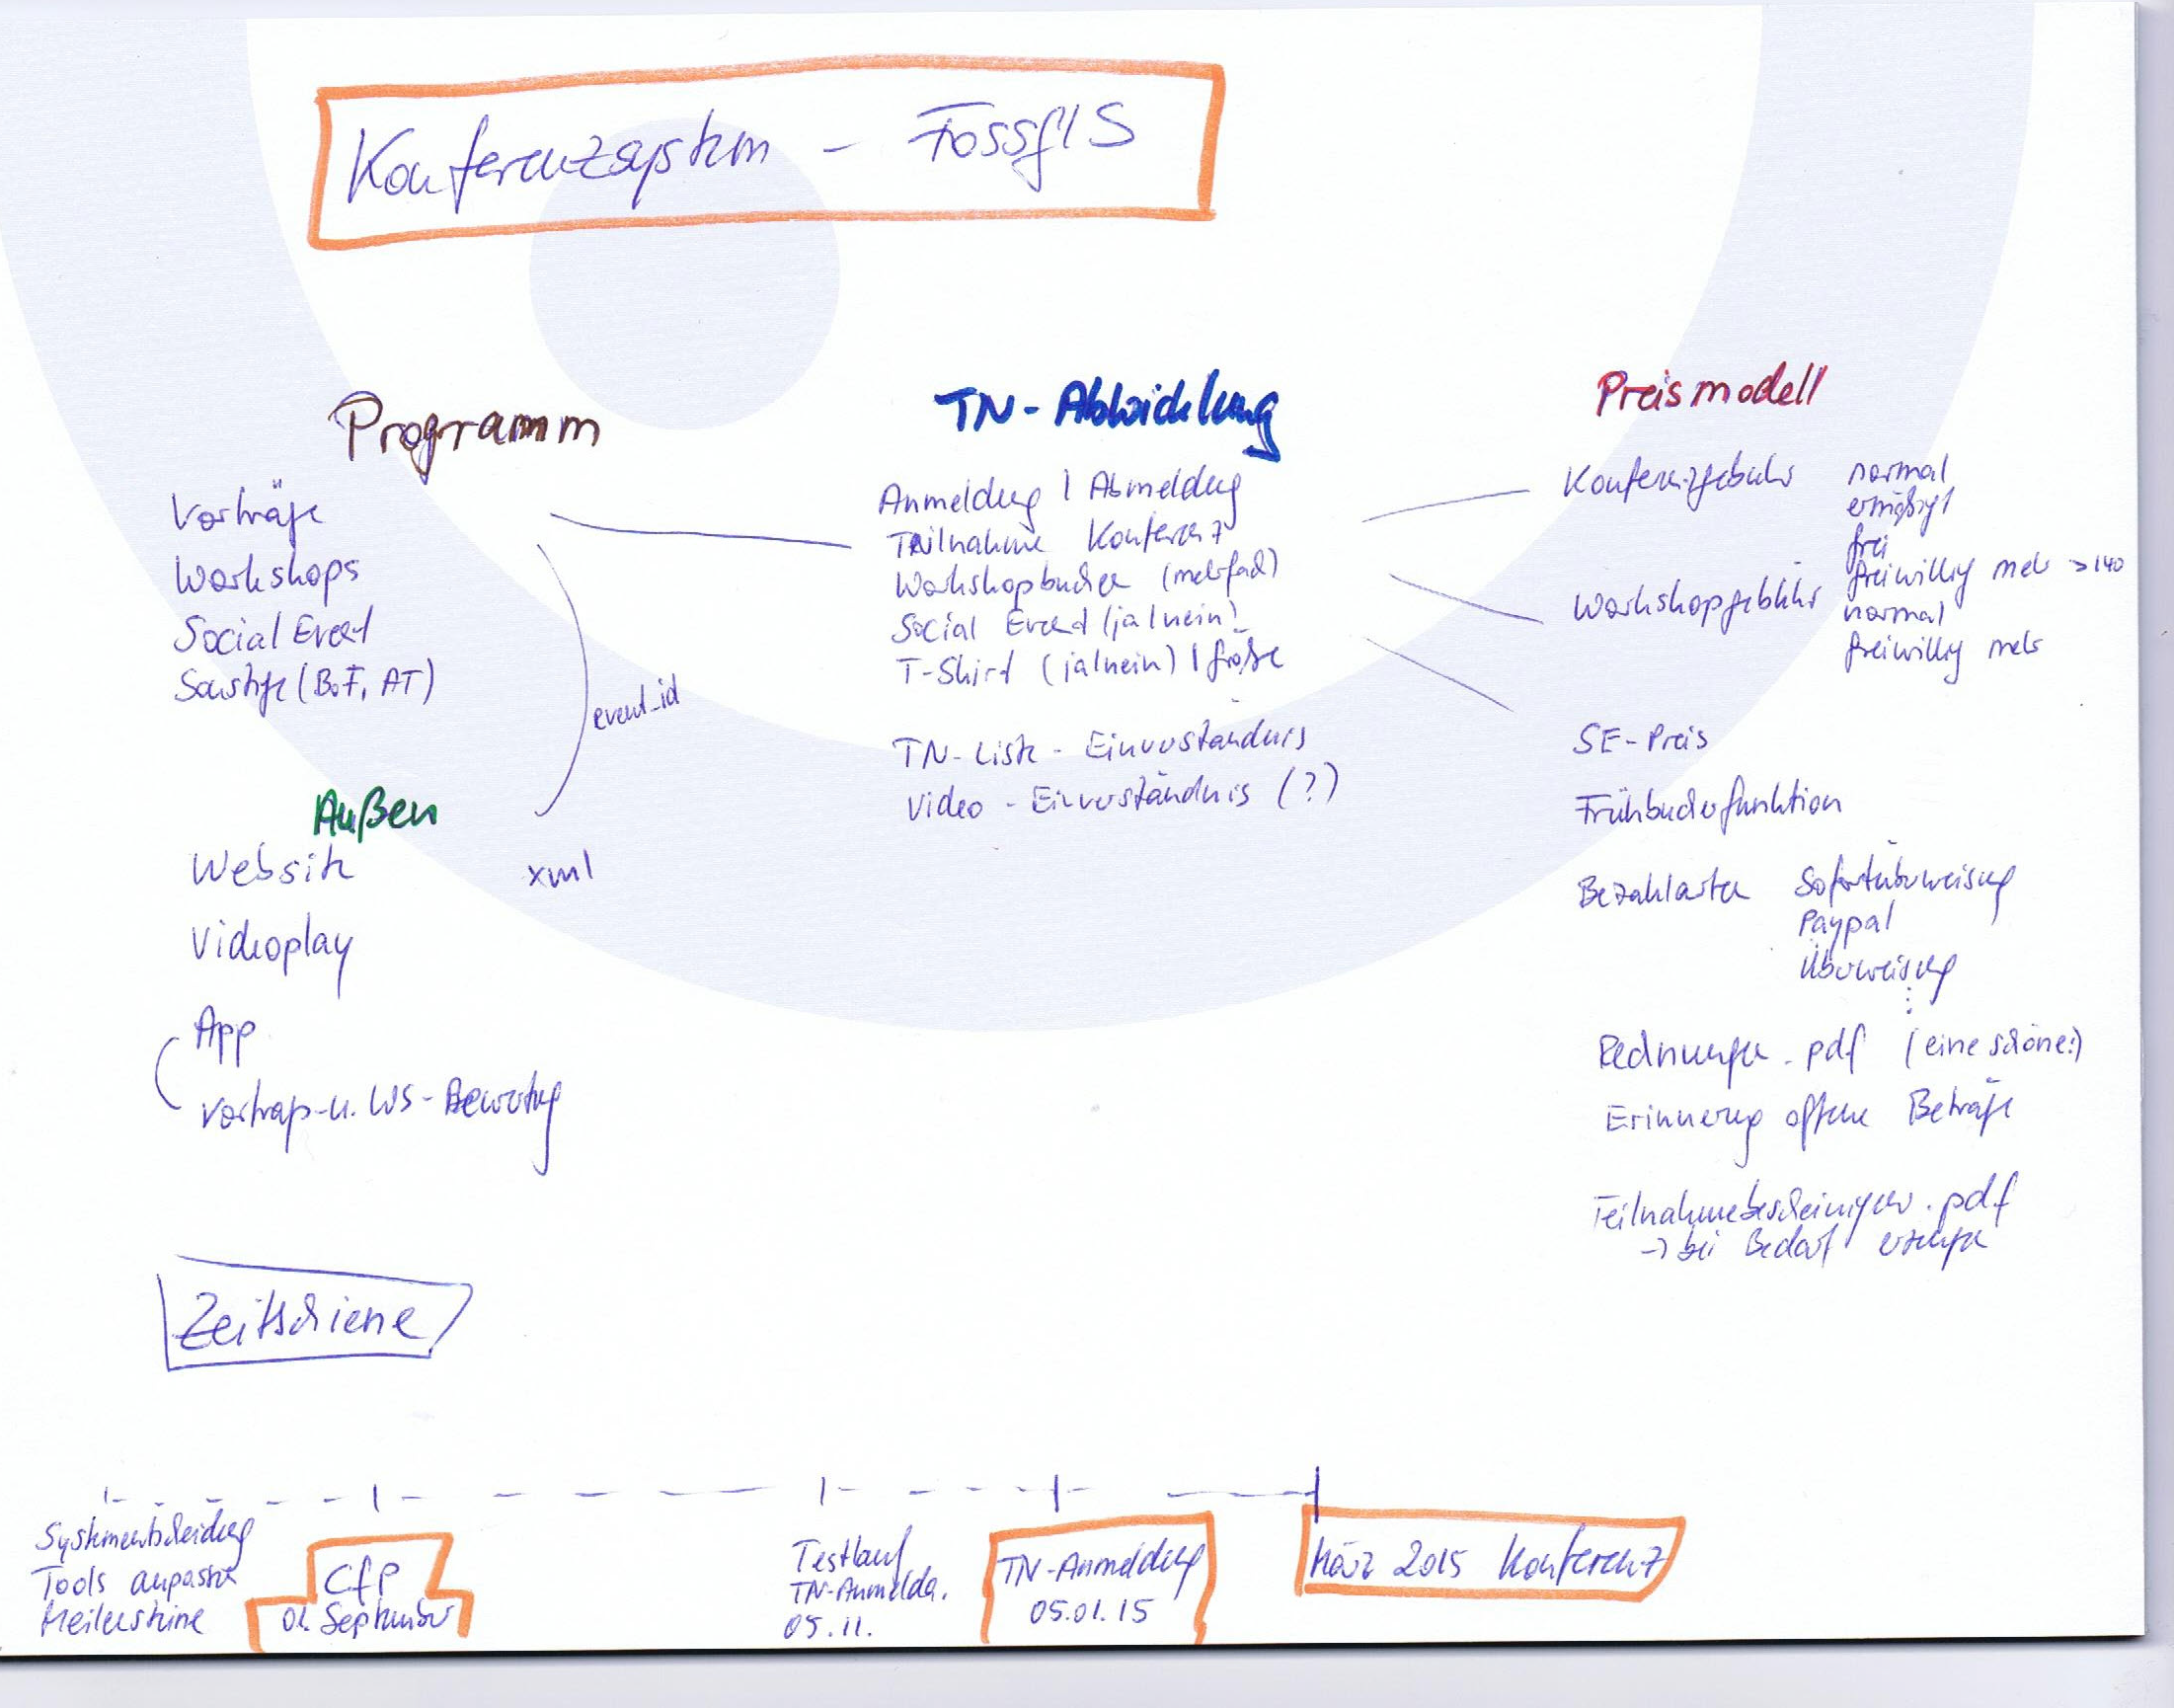 Konferenzsystem - FossGIS
Programm
Vorträge
Workshops
Social Event
Sonstige (BoF, AT)
event_id
Außen
Website
xml
Videoplay
App
Vortrags-u. WS-Bewertung
TN-Abwicklung
Anmeldung | Abmeldung
Teilnahme Konferenz
Workshopbuchen (mehrfach)
Social Event (ja/nein)
T-Shirt (ja/nein) | Größe
TN-Liste - Einverständnis
Video - Einverständnis (?)
Preismodell
Konferenzgebühr normal
ermäßigt
frei
freiwillig mehr >140
Workshopgebühr normal
freiwillig mehr
SE-Preis
Frühbucherfunktion
Bezahlarten Sofortüberweisung
Paypal
Überweisung
Rechnungen.pdf (eine schöne!)
Erinnerung offene Beträge
Teilnahmebescheinigung.pdf
-> bei Bedarf erzeugen
Zeitschiene
Systementscheidung
Tools anpassen
Meilensteine
CfP
01. September
Testlauf
TN-Anmeldg.
05.11.
TN-Anmeldung
05.01.15
März 2015 Konferenz